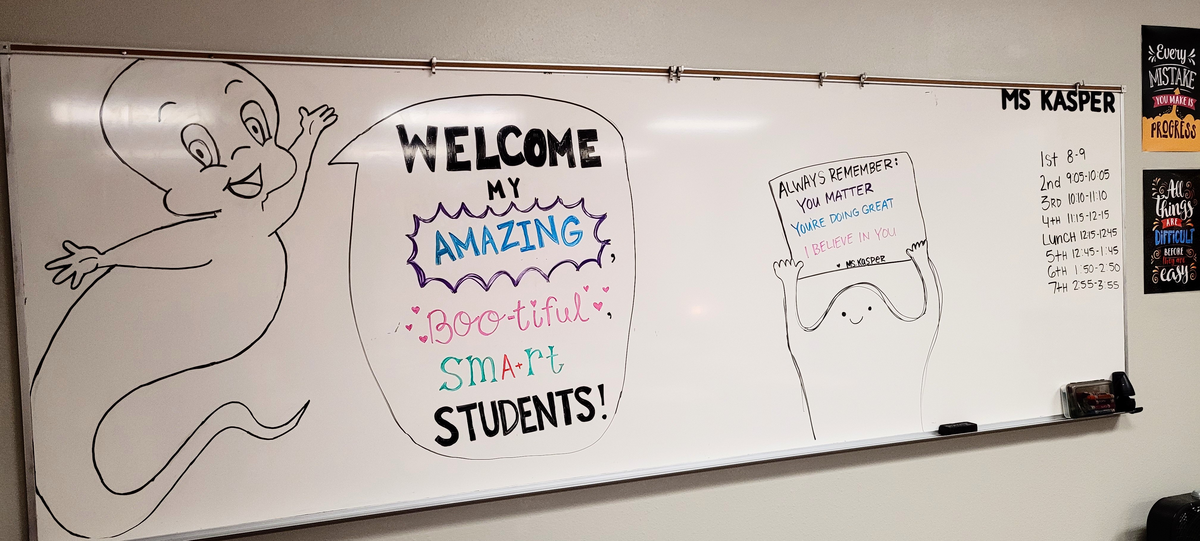 WELCOME
MY
AMAZING,
Boo-tiful,
SMA+rt
STUDENTS!
ALWAYS REMEMBER:
YOU MATTER
YOURE DOING GREAT
I BELIEVE IN YOU
♥ MS.KASPER
MS KASPER
1st 8-9
2nd 9:05-10:05
3RD 10:10-11:10
4TH 11:15-12:15
LUNCH 12:15-12:45
5TH 12:45-1:45
6TH 1:50-2:50
7TH 2:55-3:55
Every
MISTAKE
YOU MAKE IS
PROGRESS
All
things
ARE
DIFFICULT
BEFORE
they are
easy